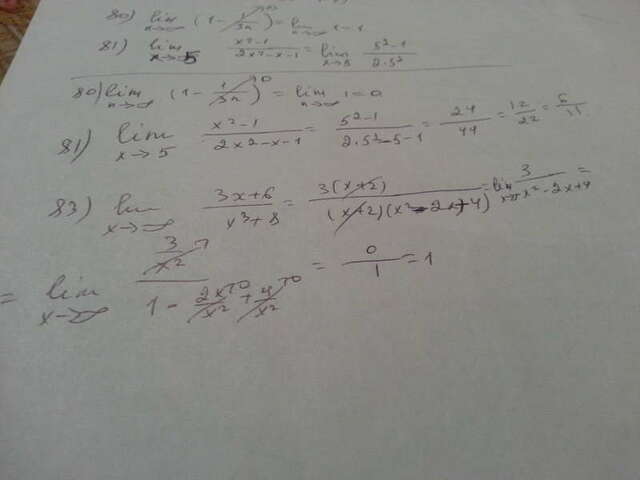 80) lim n→∞ (1 - 1/3n) = lim n→∞ 1 - 1
81) lim x→5 x²-1/2x²-x-1 = lim x→5 5²-1/2·5²
80) lim n→∞ (1 - 1/3n)→0 = lim n→∞ 1 = 0
81) lim x→5 x²-1/2x²-x-1 = 5²-1/2·5²-5-1 = 24/44 = 12/22 = 6/11
83) lim x→∞ 3x+6/x³+8 = 3(x+2)/(x+2)(x²-2x+4) = lim 3/x²-2x+4 =
= lim x→∞ 3/x²/1 - 2x/x²→0 + 4/x²→0 = 0/1 = 1